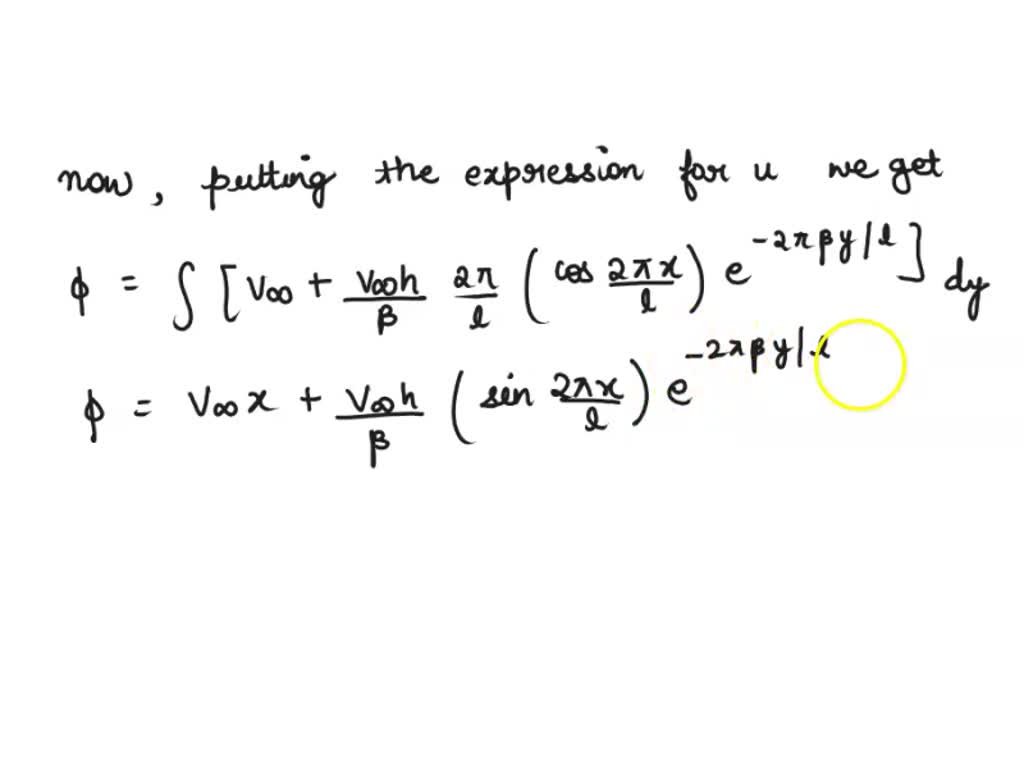 now, putting the expression for u we get
ϕ = ∫ [V∞ + V∞h/β 2π/l (cos 2πx/l) e^-2πβy/l] dy
ϕ = V∞x + V∞h/β (sin 2πx/l) e^-2πβy/l